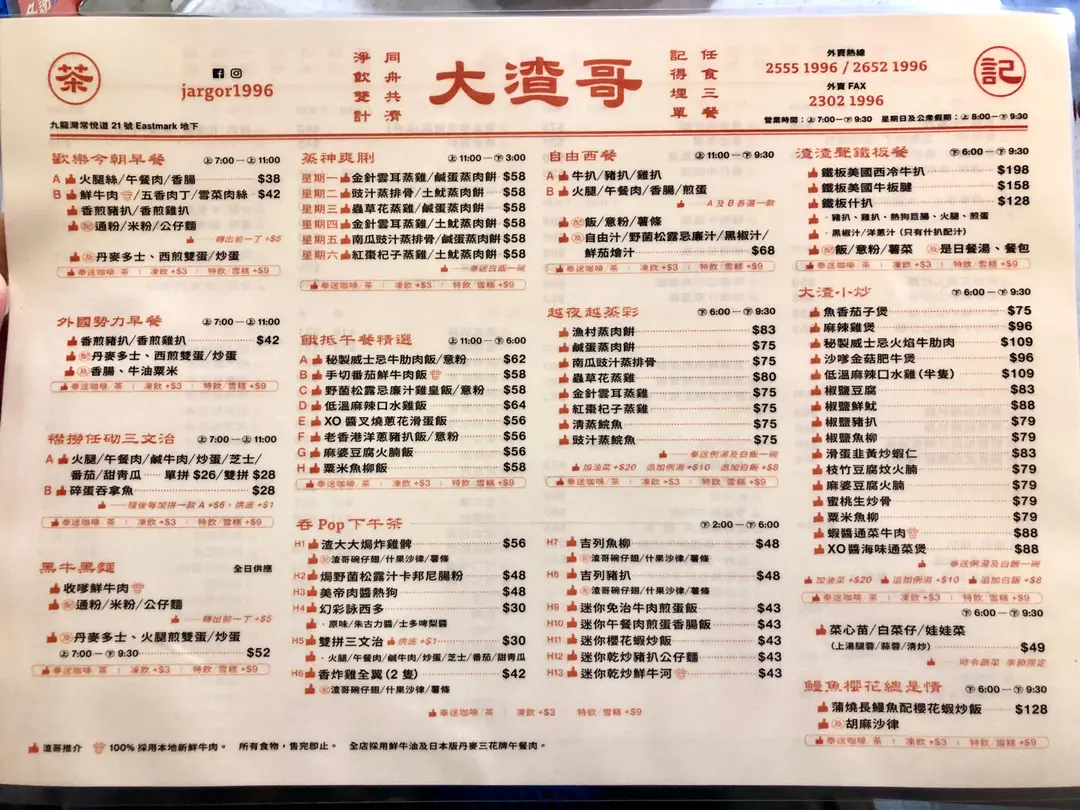 茶
jargor1996
同舟共濟
淨飲雙計
大渣哥
任食三餐
記得埋單
外賣熱線
2555 1996 / 2652 1996
外賣 FAX
2302 1996
記
九龍灣常悅道 21 號 Eastmark 地下
營業時間：上 7:00一下 9:30 星期日及公眾假期：上 8:00一下 9:30
歡樂今朝早餐 上 7:00一上 11:00
A 火腿絲/午餐肉/香腸 $38
B 鮮牛肉/五香肉丁/雪菜肉絲 $42
香煎豬扒/香煎雞扒
配 通粉/米粉/公仔麵
轉出前一丁 +$5
及 丹麥多士、西煎雙蛋/炒蛋
奉送咖啡/茶 | 凍飲 +$3 | 特飲/雪糕 +$9
外國勢力早餐 上 7:00一上 11:00
香煎豬扒/香煎雞扒 $42
配 丹麥多士、西煎雙蛋/炒蛋
及 香腸、牛油粟米
奉送咖啡/茶 | 凍飲 +$3 | 特飲/雪糕 +$9
襟撈任砌三文治 上 7:00一上 11:00
A 火腿/午餐肉/鹹牛肉/炒蛋/芝士/
番茄/甜青瓜 單拼 $26/雙拼 $28
B 碎蛋吞拿魚 $28
隨後每加拼一款 A +$6，烘底 +$1
奉送咖啡/茶 | 凍飲 +$3 | 特飲/雪糕 +$9
黑牛黑麵 全日供應
收嗲鮮牛肉
配 通粉/米粉/公仔麵
轉出前一丁 +$5
及 丹麥多士、火腿煎雙蛋/炒蛋
上 7:00一下 9:30 $52
奉送咖啡/茶 | 凍飲 +$3 | 特飲/雪糕 +$9
蒸神爽脷 上 11:00一下 3:00
星期一 金針雲耳蒸雞/鹹蛋蒸肉餅 $58
星期二 豉汁蒸排骨/土魷蒸肉餅 $58
星期三 蟲草花蒸雞/鹹蛋蒸肉餅 $58
星期四 金針雲耳蒸雞/土魷蒸肉餅 $58
星期五 南瓜豉汁蒸排骨/鹹蛋蒸肉餅 $58
星期六 紅棗杞子蒸雞/土魷蒸肉餅 $58
奉送白飯一碗
奉送咖啡/茶 | 凍飲 +$3 | 特飲/雪糕 +$9
餓抵午餐精選 上 11:00一下 6:00
A 秘製威士忌牛肋肉飯/意粉 $62
B 手切番茄鮮牛肉飯 $58
C 野菌松露忌廉汁雞皇飯/意粉 $58
D 低溫麻辣口水雞飯 $64
E XO 醬叉燒蔥花滑蛋飯 $56
F 老香港洋蔥豬扒飯/意粉 $56
G 麻婆豆腐火腩飯 $56
H 粟米魚柳飯 $58
奉送咖啡/茶 | 凍飲 +$3 | 特飲/雪糕 +$9
自由西餐 上 11:00一下 9:30
A 牛扒/豬扒/雞扒
B 火腿/午餐肉/香腸/煎蛋
A 及 B 各選一款
配 飯/意粉/薯條
及 自由汁/野菌松露忌廉汁/黑椒汁/
鮮茄燴汁 $68
奉送咖啡/茶 | 凍飲 +$3 | 特飲/雪糕 +$9
越夜越蒸彩 下 6:00一下 9:30
漁村蒸肉餅 $83
鹹蛋蒸肉餅 $75
南瓜豉汁蒸排骨 $75
蟲草花蒸雞 $80
金針雲耳蒸雞 $75
紅棗杞子蒸雞 $75
清蒸鯇魚 $75
豉汁蒸鯇魚 $75
奉送例湯及白飯一碗
加油菜 +$20 追加例湯 +$10 追加白飯 +$8
奉送咖啡/茶 | 凍飲 +$3 | 特飲/雪糕 +$9
吞 Pop 下午茶 下 2:00一下 6:00
H1 渣大大焗炸雞髀 $56
配 渣哥碗仔翅/什果沙律/薯條
H2 焗野菌松露汁卡邦尼腸粉 $48
H3 美帝肉醬熱狗 $48
H4 幻彩詠西多 $30
· 原味/朱古力醬/士多啤梨醬
H5 雙拼三文治 烘底 +$1 $30
· 火腿/午餐肉/鹹牛肉/炒蛋/芝士/番茄/甜青瓜
H6 香炸雞全翼 (2 隻) $42
配 渣哥碗仔翅/什果沙律/薯條
H7 吉列魚柳 $48
配 渣哥碗仔翅/什果沙律/薯條
H8 吉列豬扒 $48
配 渣哥碗仔翅/什果沙律/薯條
H9 迷你免治牛肉煎蛋飯 $43
H10 迷你午餐肉煎蛋香腸飯 $43
H11 迷你櫻花蝦炒飯 $43
H12 迷你乾炒豬扒公仔麵 $43
H13 迷你乾炒鮮牛河 $43
奉送咖啡/茶 | 凍飲 +$3 | 特飲/雪糕 +$9
渣渣聲鐵板餐 下 6:00一下 9:30
鐵板美國西冷牛扒 $198
鐵板美國牛板腱 $158
鐵板什扒 $128
· 豬扒、雞扒、熱狗巨腸、火腿、煎蛋
· 黑椒汁/洋蔥汁 (只有什扒配汁)
配 飯/意粉/薯菜 及 是日餐湯、餐包
奉送咖啡/茶 | 凍飲 +$3 | 特飲/雪糕 +$9
大渣小炒 下 6:00一下 9:30
魚香茄子煲 $75
麻辣雞煲 $96
秘製威士忌火焰牛肋肉 $109
沙嗲金菇肥牛煲 $96
低溫麻辣口水雞 (半隻) $109
椒鹽豆腐 $83
椒鹽鮮魷 $88
椒鹽豬扒 $79
椒鹽魚柳 $79
滑蛋韭黃炒蝦仁 $83
枝竹豆腐炆火腩 $79
麻婆豆腐火腩 $79
蜜桃生炒骨 $79
粟米魚柳 $79
蝦醬通菜牛肉 $88
XO 醬海味通菜煲 $88
奉送例湯及白飯一碗
加油菜 +$20 追加例湯 +$10 追加白飯 +$8
奉送咖啡/茶 | 凍飲 +$3 | 特飲/雪糕 +$9
下 6:00一下 9:30
菜心苗/白菜仔/娃娃菜
(上湯腿蓉/蒜蓉/清炒) $49
時令蔬菜 季節限定
鰻魚櫻花總是情 下 6:00一下 9:30
蒲燒長鰻魚配櫻花蝦炒飯 $128
及 胡麻沙律
奉送咖啡/茶 | 凍飲 +$3 | 特飲/雪糕 +$9
渣哥推介 100% 採用本地新鮮牛肉。 所有食物，售完即止。 全店採用鮮牛油及日本版丹麥三花牌午餐肉。